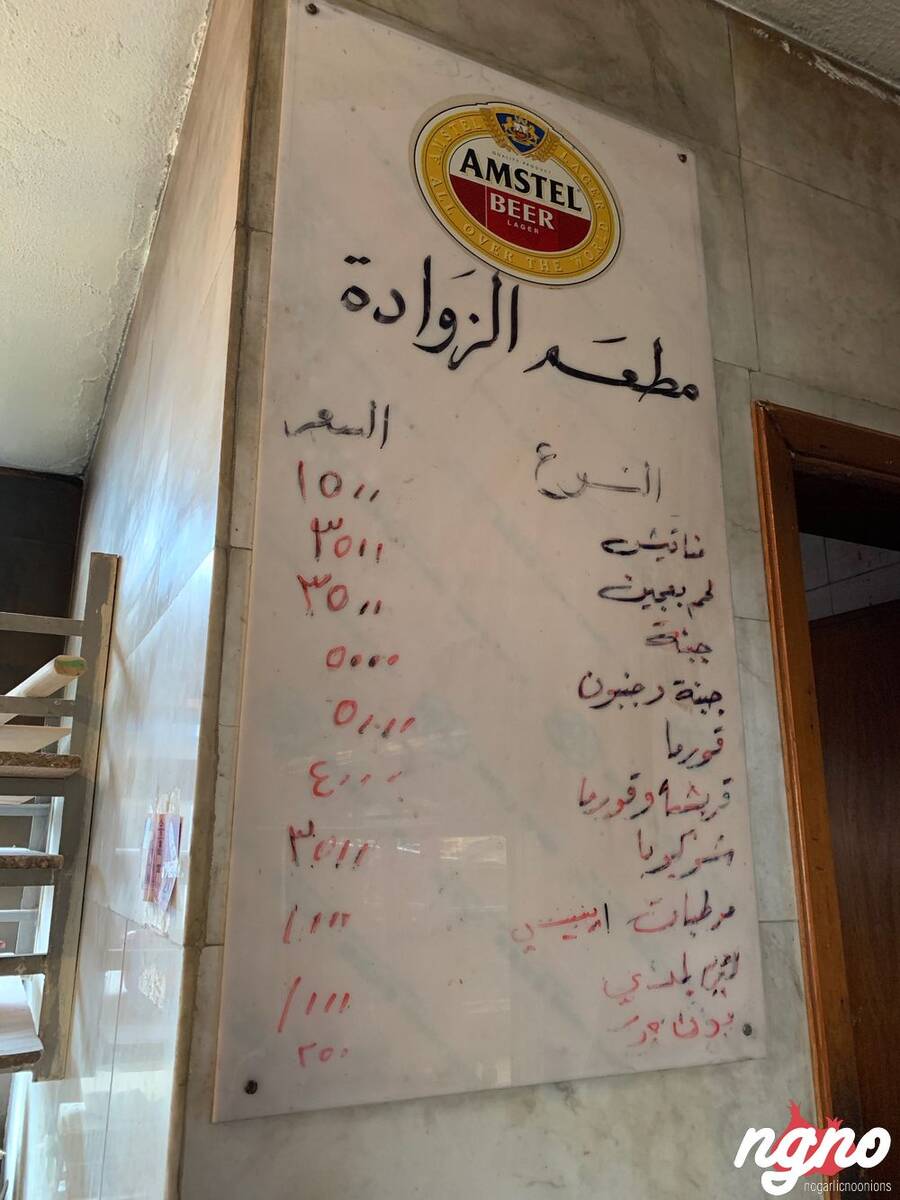 AMSTEL LAGER
QUALITY PRODUCT
AMSTEL
BEER
LAGER
ALL OVER THE WORLD
مطعم الزوادة
النوع السعر
مناقيش ١٥٠٠
لحم بعجين ٣٥٠٠
جبنة ٣٥٠٠
جبنة وجنبون ٥٠٠٠
قورما ٥٠٠٠
قريشة وقورما ٤٠٠٠
شوكولا ٣٥٠٠
مرطبات ١٠٠٠
لبن بلدي ١٠٠٠
بدون ٢٥٠
ngno
nogarlicnoonions